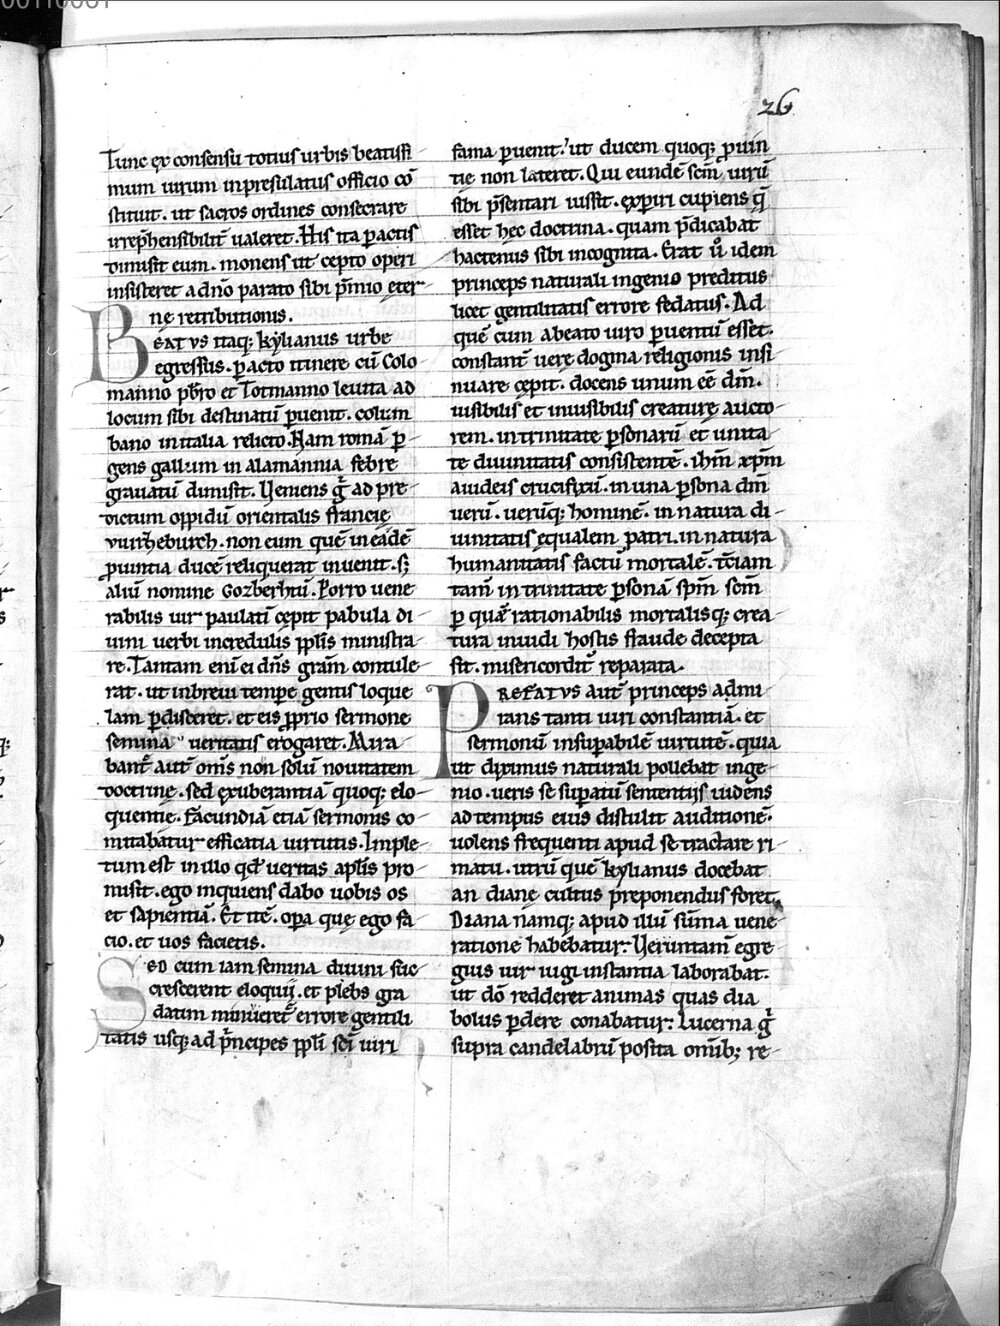 00110061
26
Tunc ex consensu totius urbis beatissi
mum uirum inpresulatus officio cō
stituit. ut sacros ordines consecrare
irrep̄hensibilit̄ ualeret. His ita peractis
dimisit eum. monens ut cepto operi
insisteret adn̄o parato sibi p̄mio ęter
nę retributionis.
BEATVS itaq; kẏlianus urbe
egressus. pacto itinere cū Colo
manno pb̄ro et Totmanno leuita ad
locum sibi destinatū puenit. colum
bano initalia relicto. Nam romā p
gens gallum in alamannia febre
grauatū dimisit. Ueniens ḡ ad pre
dictum oppidū orientalis francię
vvirzheburch. non eum quē ineādē
puintia ducē reliquerat inuenit. s;
aliū nomine Gozberhtū. Porro uene
rabilis uir paulatī cępit pabula di
uini uerbi incredulis pp̄lis ministra
re. Tantam enī ei dn̄s grām contule
rat. ut inbreui tempe gentis loque
lam pdisceret. et eis pprio sermone
semina ueritatis erogaret. Mira
bant̄ aut̄ om̄s non solū nouitatem
doctrinę. sed exuberantiā quoq; elo
quentie. Facundiā etiā sermonis co
mitabatur efficatia uirtutis. Imple
tum est in illo qd̄ ueritas aplīs pro
misit. ego inquiens dabo uobis os
et sapientiā. Et itē. opa quę ego fa
cio. et uos facietis.
SED cum iam semina diuini suc
crescerent eloquij. et plebs gra
datim minueret̄ errore gentili
tatis usq; ad p̄ncipes pp̄li scī uiri
fama puenit. ut ducem quoq; puin
tię non lateret. Qui eundē scm̄ uirū
sibi p̄sentari iussit. experiri cupiens q̄
esset hec doctrina. quam p̄dicabat
hactenus sibi incognita. Erat ū idem
princeps naturali ingenio preditus
licet gentilitatis errore fedatus. Ad
quē cum abeato uiro puentū esset.
constant̄ uere dogma religionis insi
nuare cępit. docens unum eē dm̄.
uisibilis et inuisibilis creaturę aucto
rem. intrinitate psonarū et unita
te diuinitatis consistentē. ihm̄ xpm̄
aiudeis crucifixū. in una psona dm̄
uerū. uerūq; hominē. in natura di
uinitatis ęqualem patri. in natura
humanitatis factū mortalē. tc̄iam
tam̄ in trinitate psonā spm̄ scm̄
p quā rationabilis mortalisq; crea
tura inuidi hostis fraude decepta
sit. misericordit̄ reparata.
PREFATVS aut̄ princeps admi
rans tanti uiri constantiā. et
sermonū insupabilē uirtutē. quia
ut diximus naturali pollebat inge
nio. ueris se supatū sententijs uidens
adtempus eius distulit auditionē.
uolens frequenti apud se tractare ri
matu. utrū quē kẏlianus docebat
an dianę cultus preponendus foret.
Diana namq; apud illū sūma uene
ratione habebatur. Ueruntam̄ egre
gius uir iugi instantia laborabat.
ut dō redderet animas quas dia
bolus pdere conabatur. Lucerna ḡ
supra candelabrū posita omīb; re